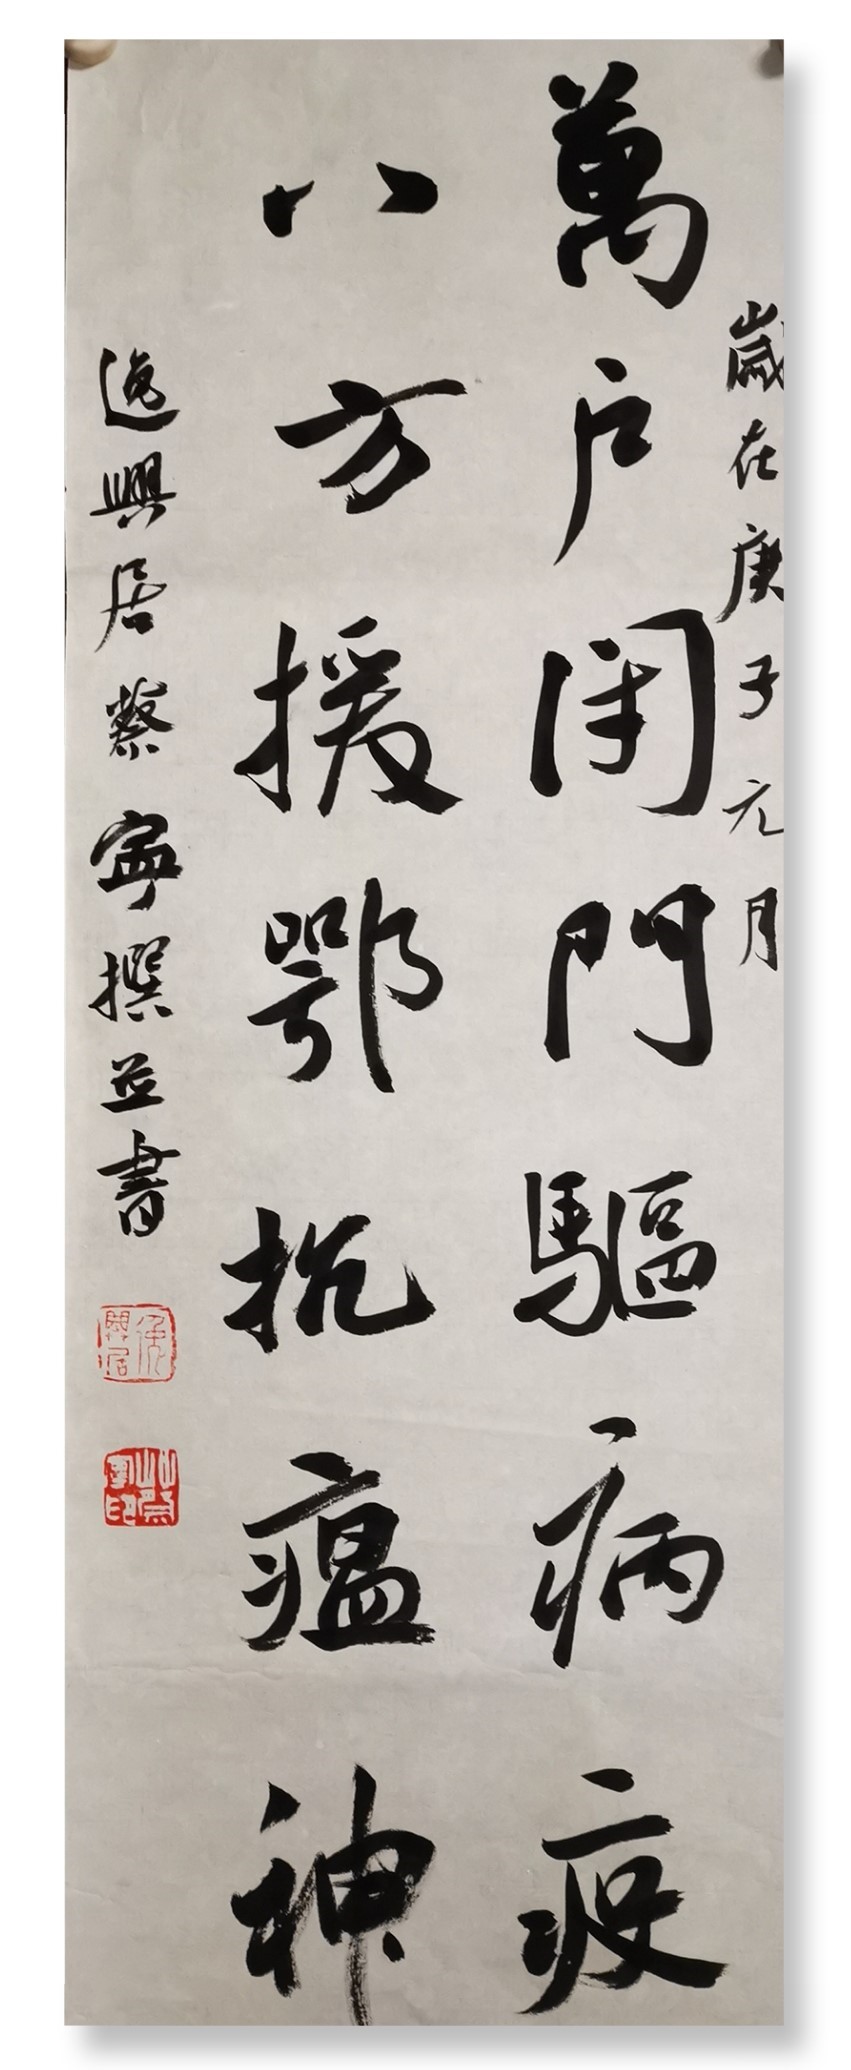 歲在庚子元月
萬戶闭門驅病疫
八方援鄂抗瘟神
逸興居蔡寧撰並書
逸興居